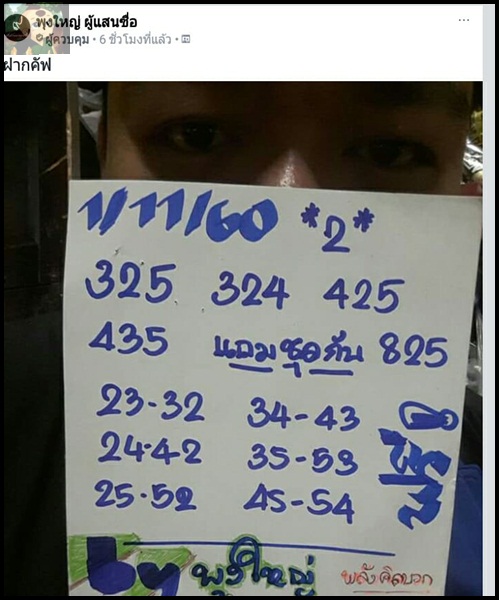 พุงใหญ่ ผู้แสนซื่อ
ผู้ควบคุม • 6 ชั่วโมงที่แล้ว •
ฝากคัฟ
1/11/60 *2*
325 324 425
435 แถมชุดกัน 825
23-32 34-43
24-42 35-53
25-52 45-54
by พุงใหญ่ พลังคิดบวก